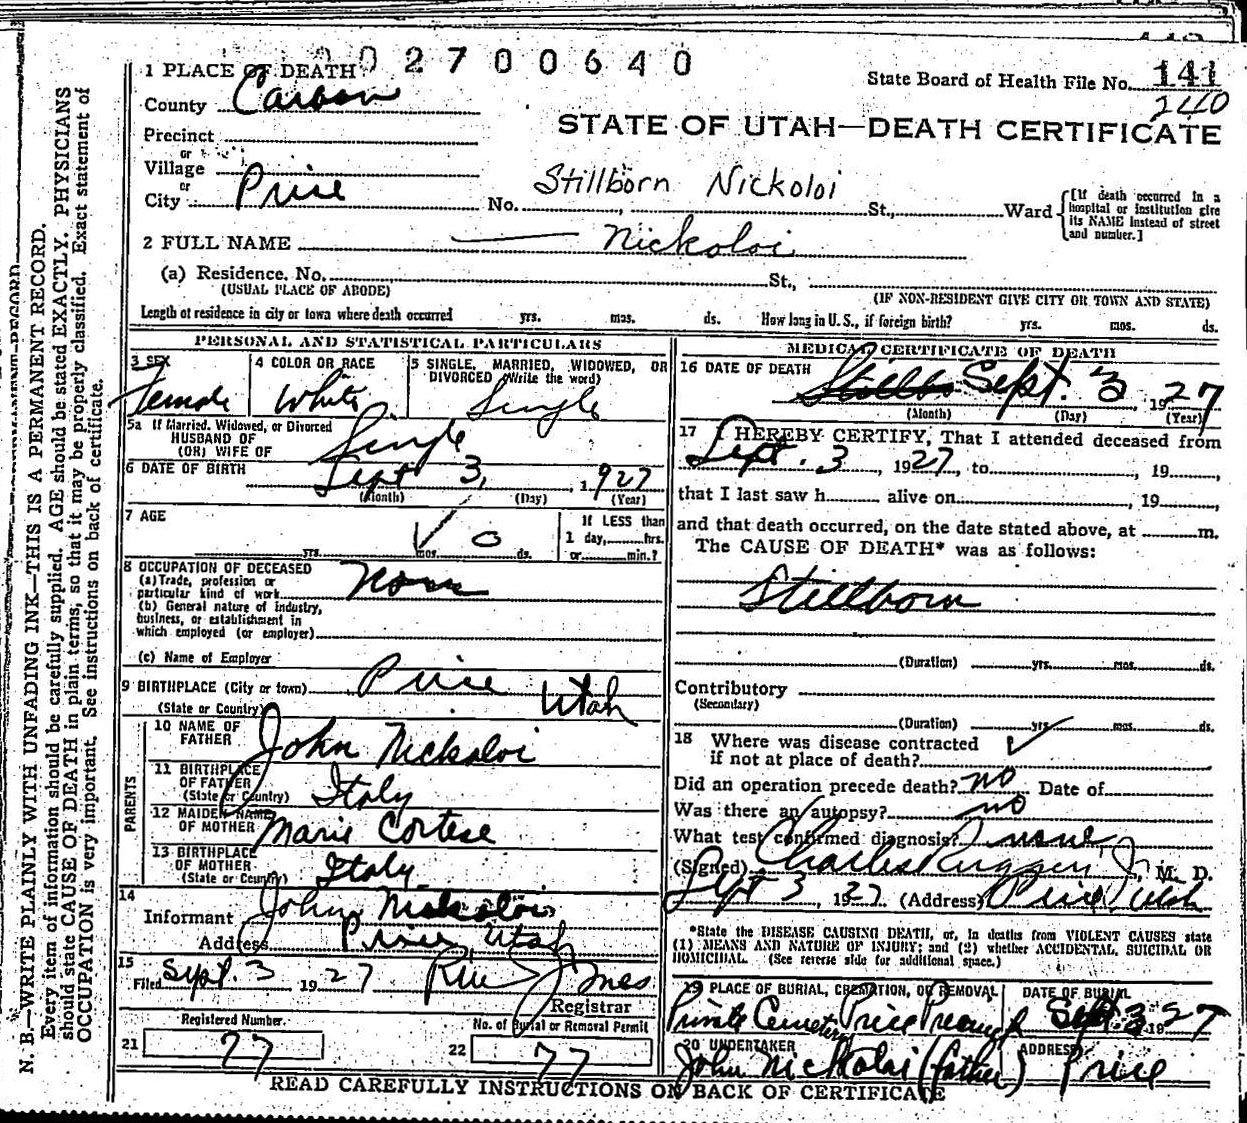 0 2 7 0 0 6 4 0
1 PLACE OF DEATH
State Board of Health File No. 141
240
County Carbon
STATE OF UTAH—DEATH CERTIFICATE
Precinct
or
Village
or
City Price
Stillborn Nickoloi
No. St., Ward
[If death occurred in a hospital or institution give its NAME instead of street and number.]
2 FULL NAME Nickoloi
(a) Residence. No. St.,
(USUAL PLACE OF ABODE) (IF NON-RESIDENT GIVE CITY OR TOWN AND STATE)
Length of residence in city or town where death occurred yrs. mos. ds. How long in U. S., if foreign birth? yrs. mos. ds.
PERSONAL AND STATISTICAL PARTICULARS
3 SEX
Female
4 COLOR OR RACE
White
5 SINGLE, MARRIED, WIDOWED, OR
DIVORCED (Write the word)
Single
5a If Married, Widowed, or Divorced
HUSBAND OF
(OR) WIFE OF
Single
6 DATE OF BIRTH Sept 3, 1927
(Month) (Day) (Year)
7 AGE
0
yrs. mos. ds.
If LESS than
1 day, hrs.
or min.?
8 OCCUPATION OF DECEASED
(a) Trade, profession or
particular kind of work None
(b) General nature of industry,
business, or establishment in
which employed (or employer)
(c) Name of Employer
9 BIRTHPLACE (City or town) Price Utah
(State or Country)
PARENTS
10 NAME OF
FATHER John Nickoloi
11 BIRTHPLACE
OF FATHER
(State or Country) Italy
12 MAIDEN NAME
OF MOTHER Marie Cortese
13 BIRTHPLACE
OF MOTHER
(State or Country) Italy
14
Informant John Nickoloi
Address Price Utah
15
Filed Sept. 3 1927
Registrar
Registered Number.
21 77
No. of Burial or Removal Permit
22 77
MEDICAL CERTIFICATE OF DEATH
16 DATE OF DEATH Sept. 3, 1927
(Month) (Day) (Year)
17 I HEREBY CERTIFY, That I attended deceased from
Sept. 3, 1927, to , 19
that I last saw h alive on , 19
and that death occurred, on the date stated above, at m.
The CAUSE OF DEATH* was as follows:
Stillborn
(Duration) yrs. mos. ds.
Contributory
(Secondary)
(Duration) yrs. mos. ds.
18 Where was disease contracted
if not at place of death?
Did an operation precede death? no Date of
Was there an autopsy? no
What test confirmed diagnosis? none
(Signed) Charles Ruggeri, Jr, M. D.
Sept 3, 1927 (Address) Price Utah
*State the DISEASE CAUSING DEATH, or, in deaths from VIOLENT CAUSES state
(1) MEANS AND NATURE OF INJURY; and (2) whether ACCIDENTAL, SUICIDAL OR
HOMICIDAL. (See reverse side for additional space.)
19 PLACE OF BURIAL, CREMATION, OR REMOVAL
Private Cemetery Price
DATE OF BURIAL
Sept 3 1927
20 UNDERTAKER
John Nickoloi (father)
ADDRESS
Price
READ CAREFULLY INSTRUCTIONS ON BACK OF CERTIFICATE
N. B.—WRITE PLAINLY WITH UNFADING INK—THIS IS A PERMANENT RECORD.
Every item of information should be carefully supplied. AGE should be stated EXACTLY. PHYSICIANS
should state CAUSE OF DEATH in plain terms, so that it may be properly classified. Exact statement of
OCCUPATION is very important. See instructions on back of certificate.